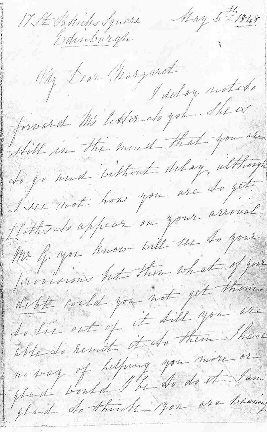 17 St. Square May 5th 1848
Edinburgh
My Dear Margaret
I delay not to
forward Mr letter to you. She is
still in the mind that you are
to go and without delay, although
I see not how you are to get
cloths to appear on your arrival
Mr G. you know will see to your
provisions but then what of your
debt could you not get them
to lie out of it till you are
able to remit it to them I have
no way of helping you more or
glad would I be to do it I am
glad to think you are